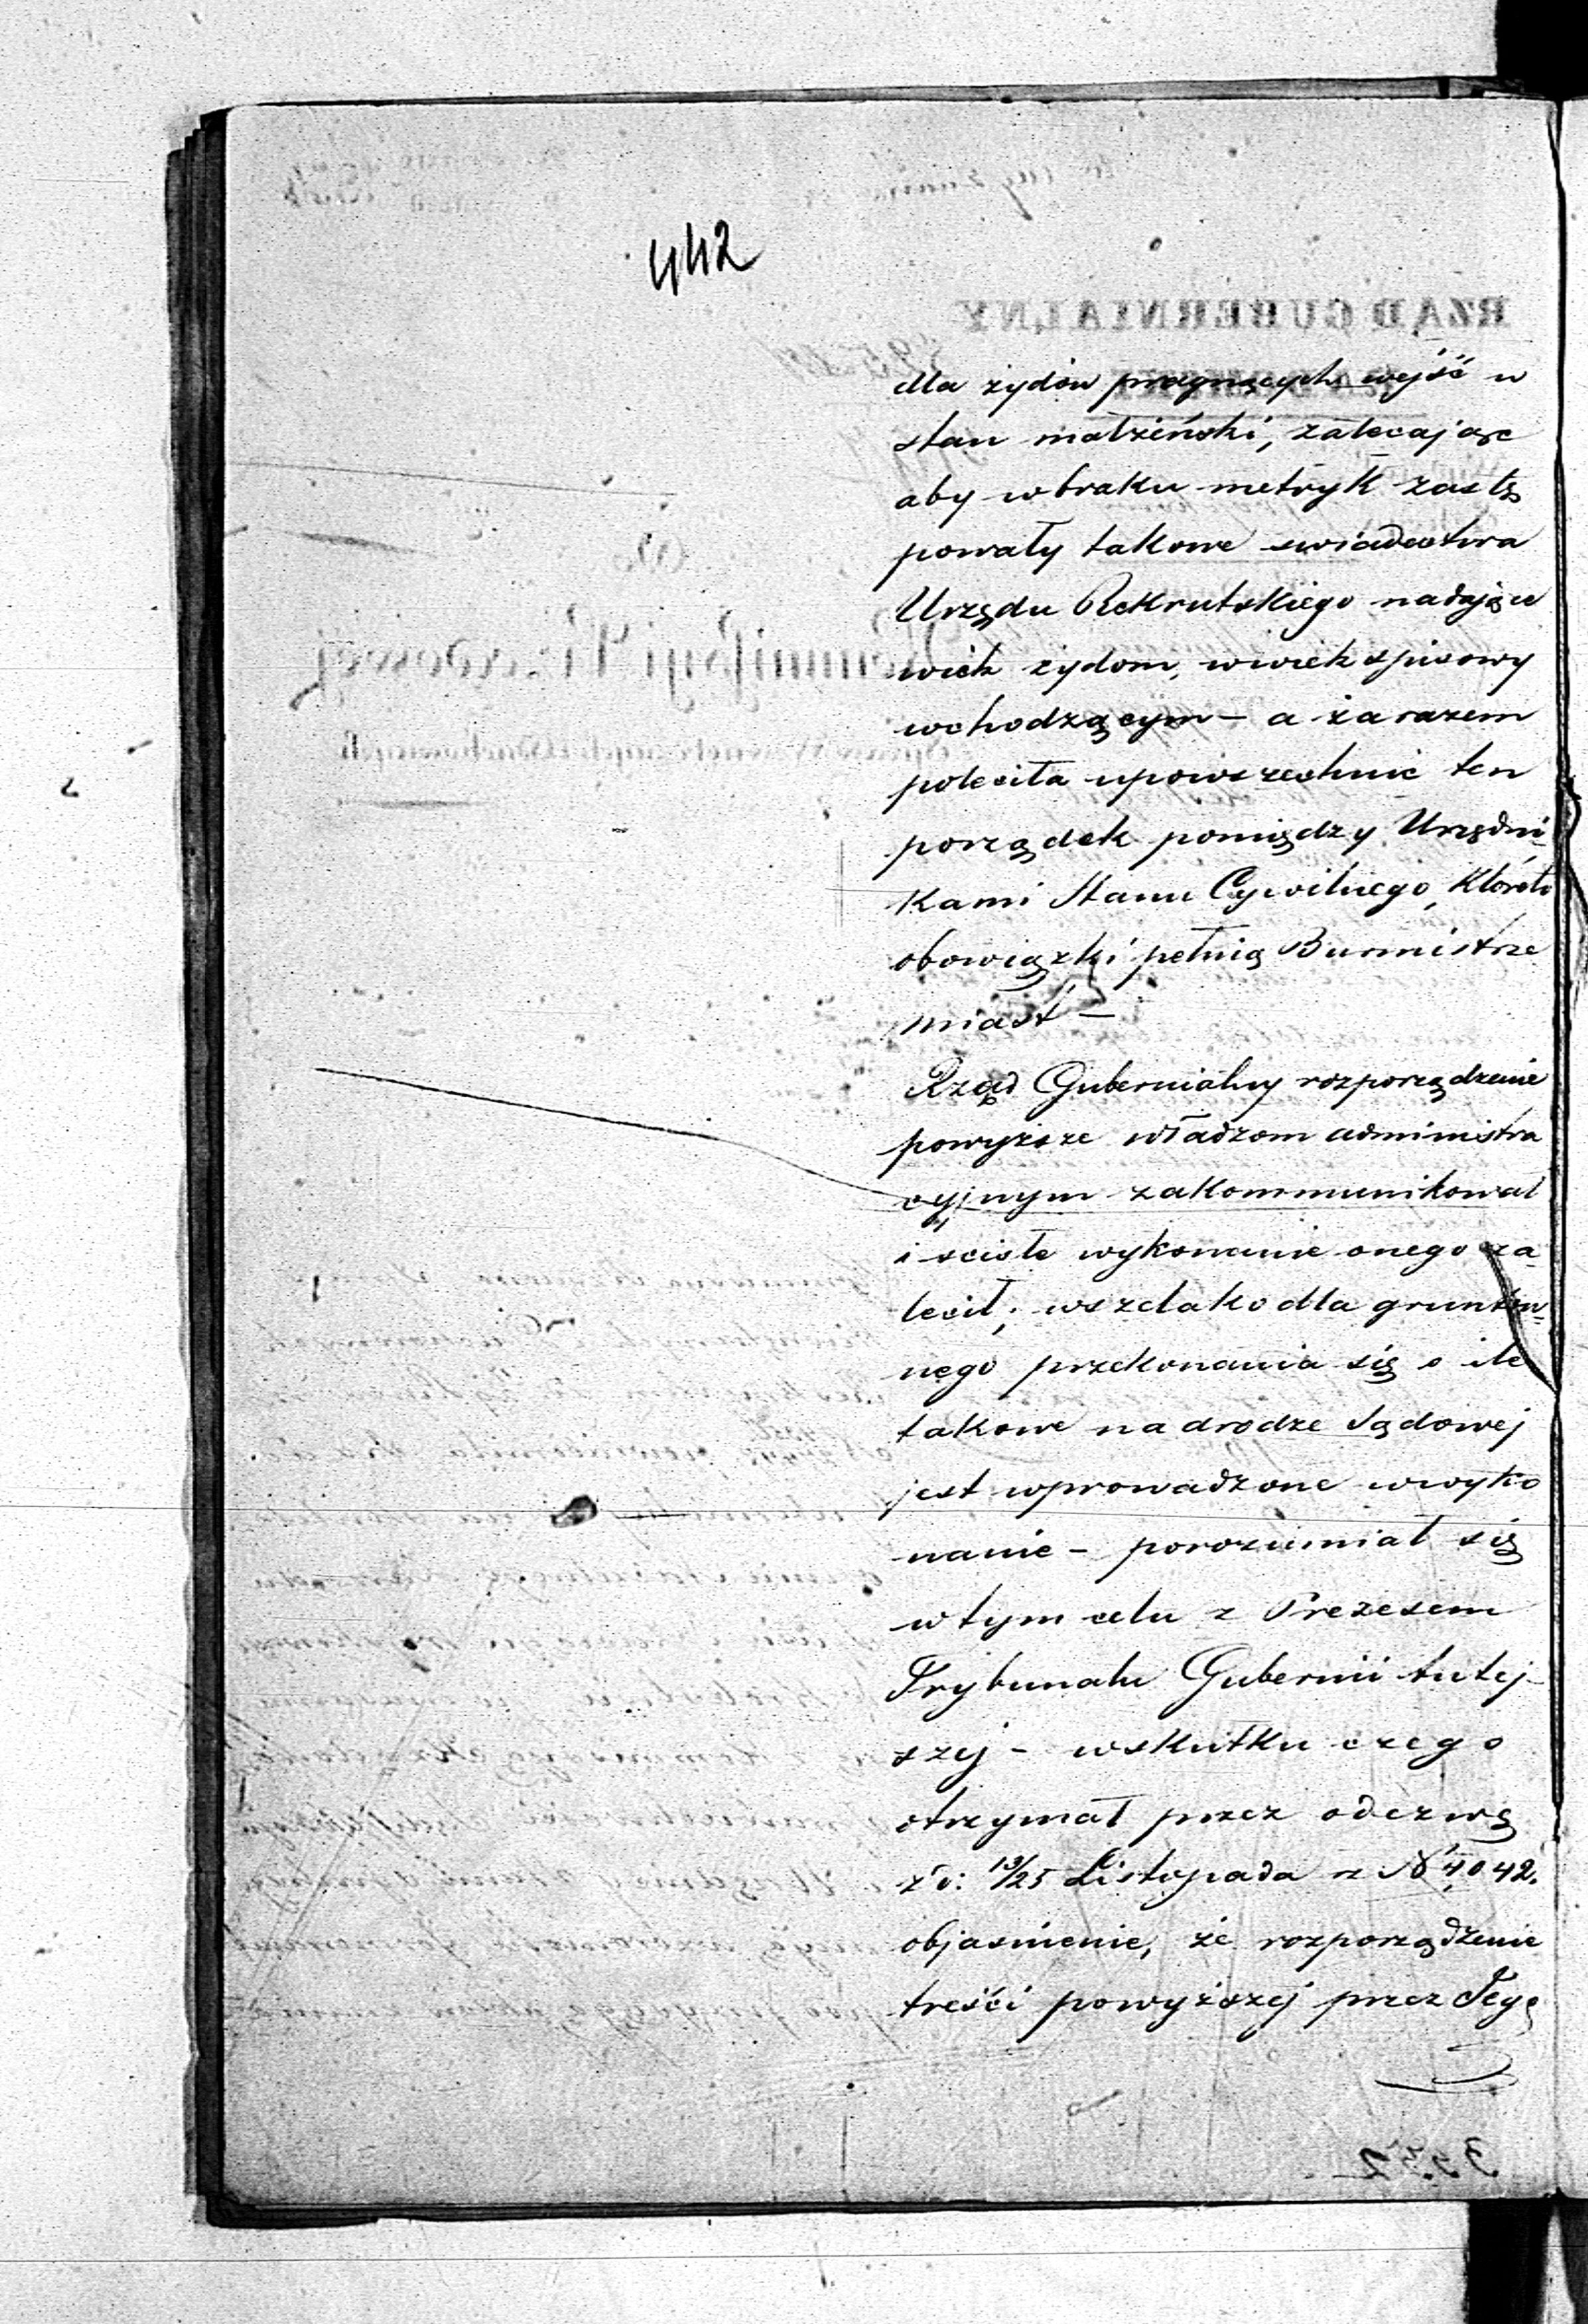 442
dla żydów pragnących wejść w
stan malżeński, zalecając
aby w braku metryk zastę
powały takowe swiadectwa
Urzędu Rekrutskiego nadające
wiek żydom, w wiek spisowy
wchodzącym – a zarazem
poleciła upowszechnić ten
porządek pomiędzy Urzędni-
kami Stanu Cywilnego, któreto
obowiązki pełnią Burmistrze
miast –
Rząd Gubernialny rozporządzenie
powyższe władzom administra
cyjnym zakommunikował
i scisłe wykonanie onego za-
lecił; wszelako dla gruntow-
nego przekonania się o ile
takowe na drodze Sądowej
jest wprowadzone w wyko
nanie – porozumiał się
w tym celu z Prezesem
Trybunału Gubernii tutej-
szej – wskutku czego
otrzymał przez odezwę
z d: 13/25 Listopada r N 4042.
objasnienie, że rozporządzenie
treści powyższej przez Tegę